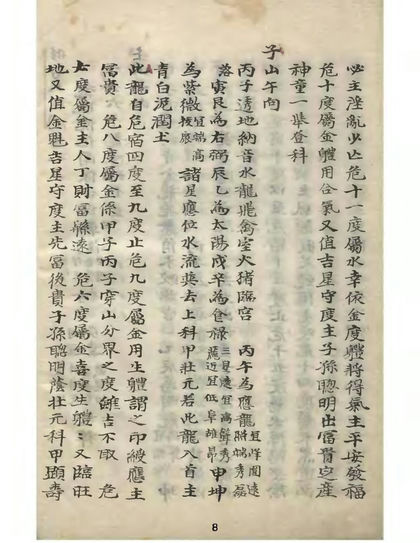 必主淫亂少亡危十一度屬水幸依金度體將得氣主平安發福
危十度屬金體用合氣又值吉星守度主子孫聰明出富貴定產
神童一舉登科
子山午向
丙子透地納音水龍飛禽室火猪臨宮 丙午為應龍宜端秀磊
落寅艮為右弼辰乙為太陽戌辛為食祿申坤
為紫微宜端高諸星應位水流巽去上科甲壯元若此龍入首主
青白泥潤土
此龍自危宿四度至九度止危九度屬金用生體謂之印綬應主
富貴 危八度屬金係甲子丙子穿山分界之度雖吉不取 危
七度屬金主人丁財富綿遠 危六度屬金喜度生體又臨旺
地又值金魁吉星守度主先富後貴子孫聰明蔭壯元科甲頭壽
8